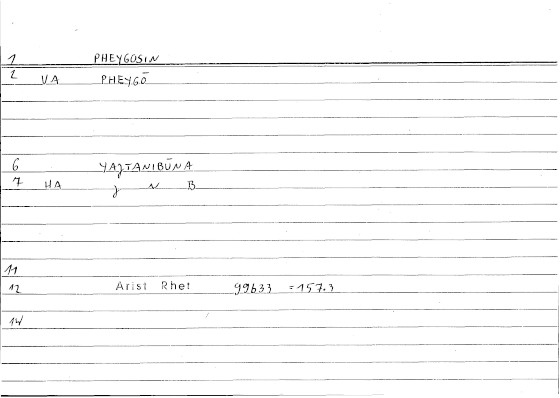 1 PHEYGOSIN
2 VA PHEYGŌ
6 YAJTANIBŪNA
7 HA J N B
11
12 Arist Rhet 99b33 =157.3
14